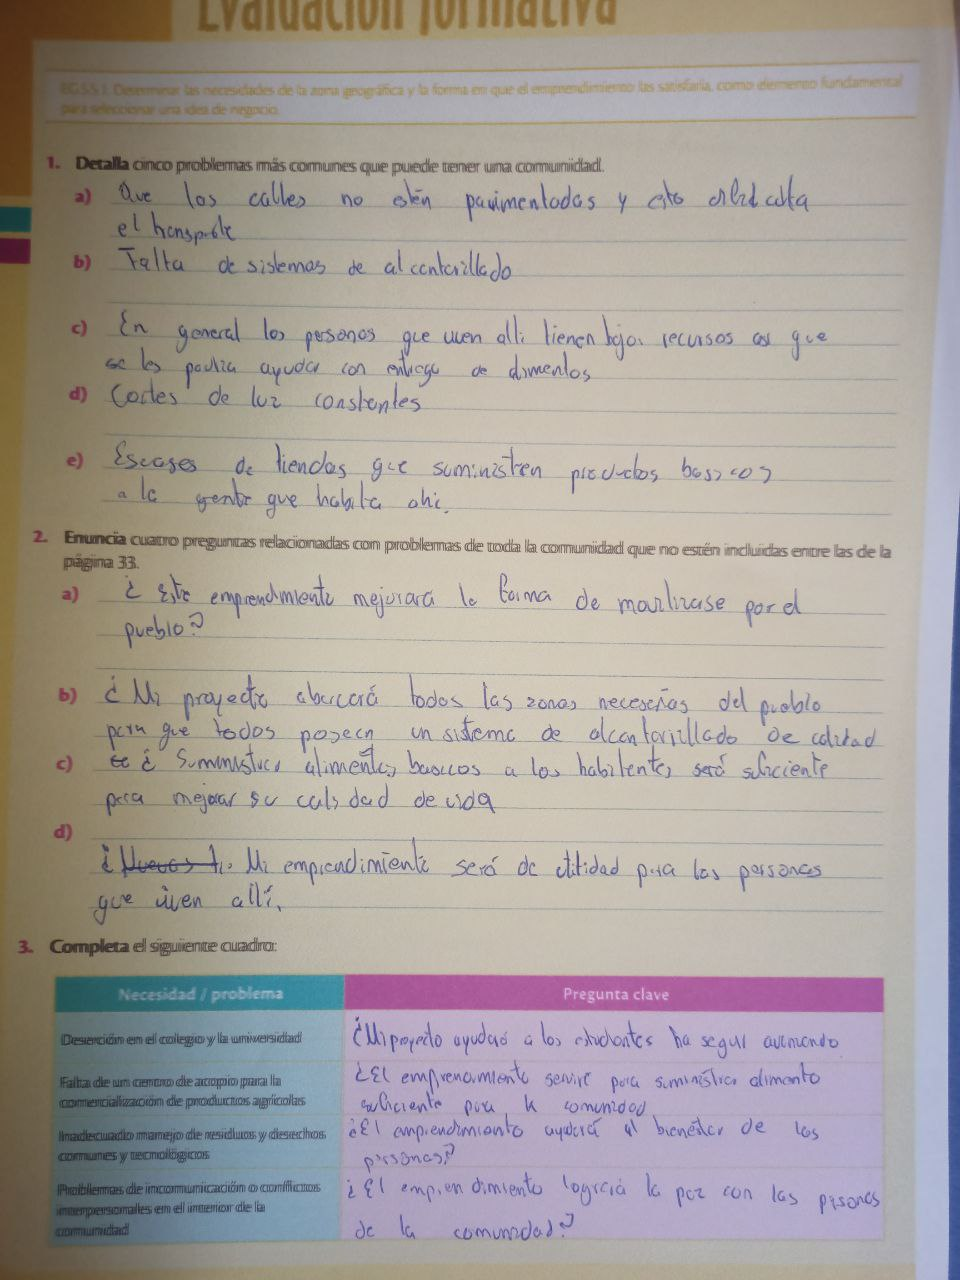 Evaluación formativa
EG.5.5.1. Determinar las necesidades de la zona geográfica y la forma en que el emprendimiento las satisfaría, como elemento fundamental
para seleccionar una idea de negocio.
1. Detalla cinco problemas más comunes que puede tener una comunidad.
a) Que las calles no estén pavimentadas y esto dificulta
el transporte
b) Falta de sistemas de alcantarillado
c) En general las personas que viven alli tienen bajos recursos asi que
se les podria ayudar con entrega de alimentos
d) Cortes de luz constantes
e) Escases de tiendas que suministren productos basicos
a la gente que habita ahi.
2. Enuncia cuatro preguntas relacionadas con problemas de toda la comunidad que no estén incluidas entre las de la
página 33.
a) ¿Este emprendimiento mejorará la forma de por el
pueblo?
b) ¿Mi proyecto abarcará todas las zonas del pueblo
para que todos posean un sistema de alcantarillado de calidad
c) ¿Suministrar alimentos basicos a los habitantes será suficiente
para mejorar su calidad de vida
d)
¿ Mi emprendimiento será de utilidad para las personas
que viven allí.
3. Completa el siguiente cuadro:
Necesidad / problema Pregunta clave
Deserción en el colegio y la universidad ¿Mi proyecto ayudará a los estudiantes ha seguir
Falta de un centro de acopio para la ¿El emprendimiento servirá para suministrar alimento
comercialización de productos agrícolas suficiente para la comunidad
Inadecuado manejo de residuos y desechos ¿El emprendimiento ayudará al bienestar de las
comunes y tecnológicos personas?
Problemas de incomunicación o conflictos ¿El emprendimiento logrará la paz con las personas
interpersonales en el interior de la de la comunidad?
comunidad